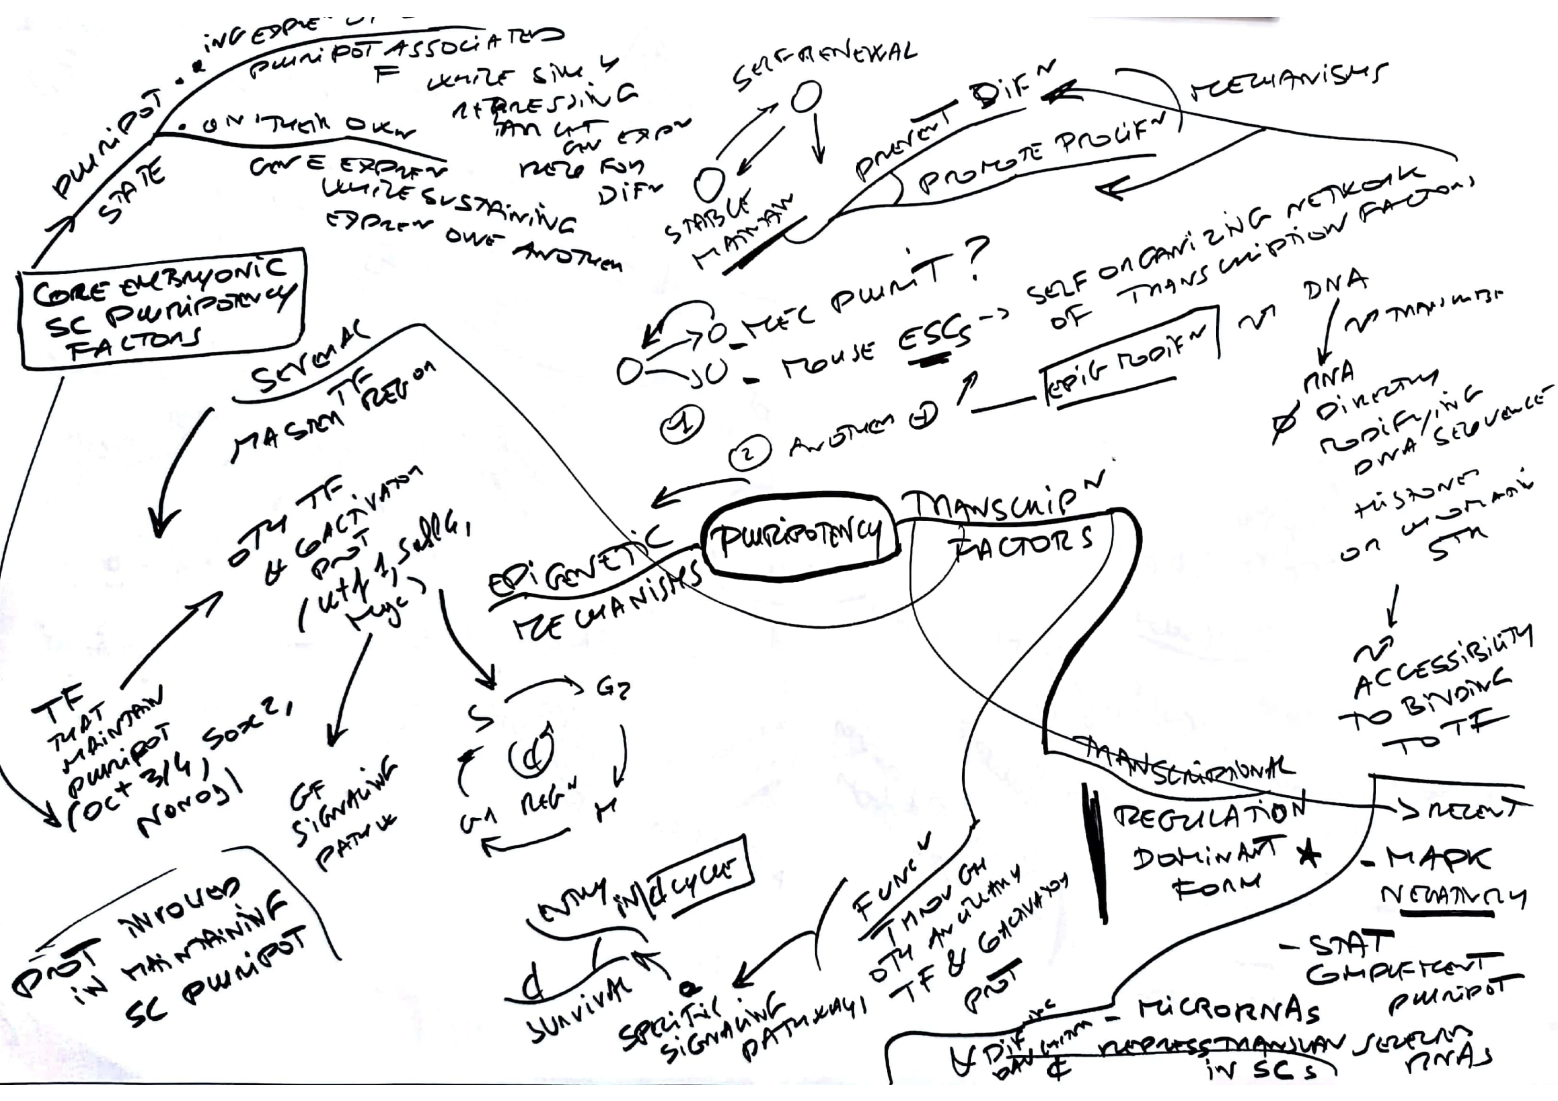 PLURIPOT
STATE
PLURIPOT ASSOCIATED
F WHILE
REPRESSING
DIFN
ON THEIR OWN
GENE EXPREN
WHILE SUSTAINING
EXPREN ONE ANOTHER
CORE EMBRYONIC
SC PLURIPOTENCY
FACTORS
SELF RENEWAL
STABLE
MAINTAIN
PREVENT DIFN
PROMOTE PROLIFN
MECHANISMS
- MEC PLURIT?
- MOUSE ESCs -> SELF ORGANIZING NETWORK
OF TRANSCRIPTION FACTORS
1
2 ANOTHER
EPIG MODIFN
DNA
RNA
DIRECTLY
MODIFYING
DNA SEQUENCE
HISTONES
OR CHROMATIN
STR
ACCESSIBILITY
TO BINDING
TO TF
SEVERAL
TF
MASTER REGOR
OTH TF
& COACTIVATOR
PROT
(Utf1, Sall4,
Myc)
TF
THAT
MAINTAIN
PLURIPOT
(OCT 3/4, SOX2,
NANOG)
GF
SIGNALING
PATHW
S
G2
M
G1
REGN
PROT INVOLVED
IN MAINTAINING
SC PLURIPOT
PLURIPOTENCY
EPIGENETIC
MECHANISMS
TRANSCRIPN
FACTORS
TRANSCRIPTIONAL
REGULATION
DOMINANT
FORM
FUNC
THROUGH
OTH ANCILLARY
TF & COACTIVATOR
PROT
SPECIFIC
SIGNALING
PATHWAYS
ENTRY IN CYCLE
SURVIVAL
RECENT
- MAPK
NEGATIVELY
- STAT
COMPLEMENT
PLURIPOT
- MICRORNAS
REPRESS TRANSLAN SEVERAL
IN SCs
RNAS